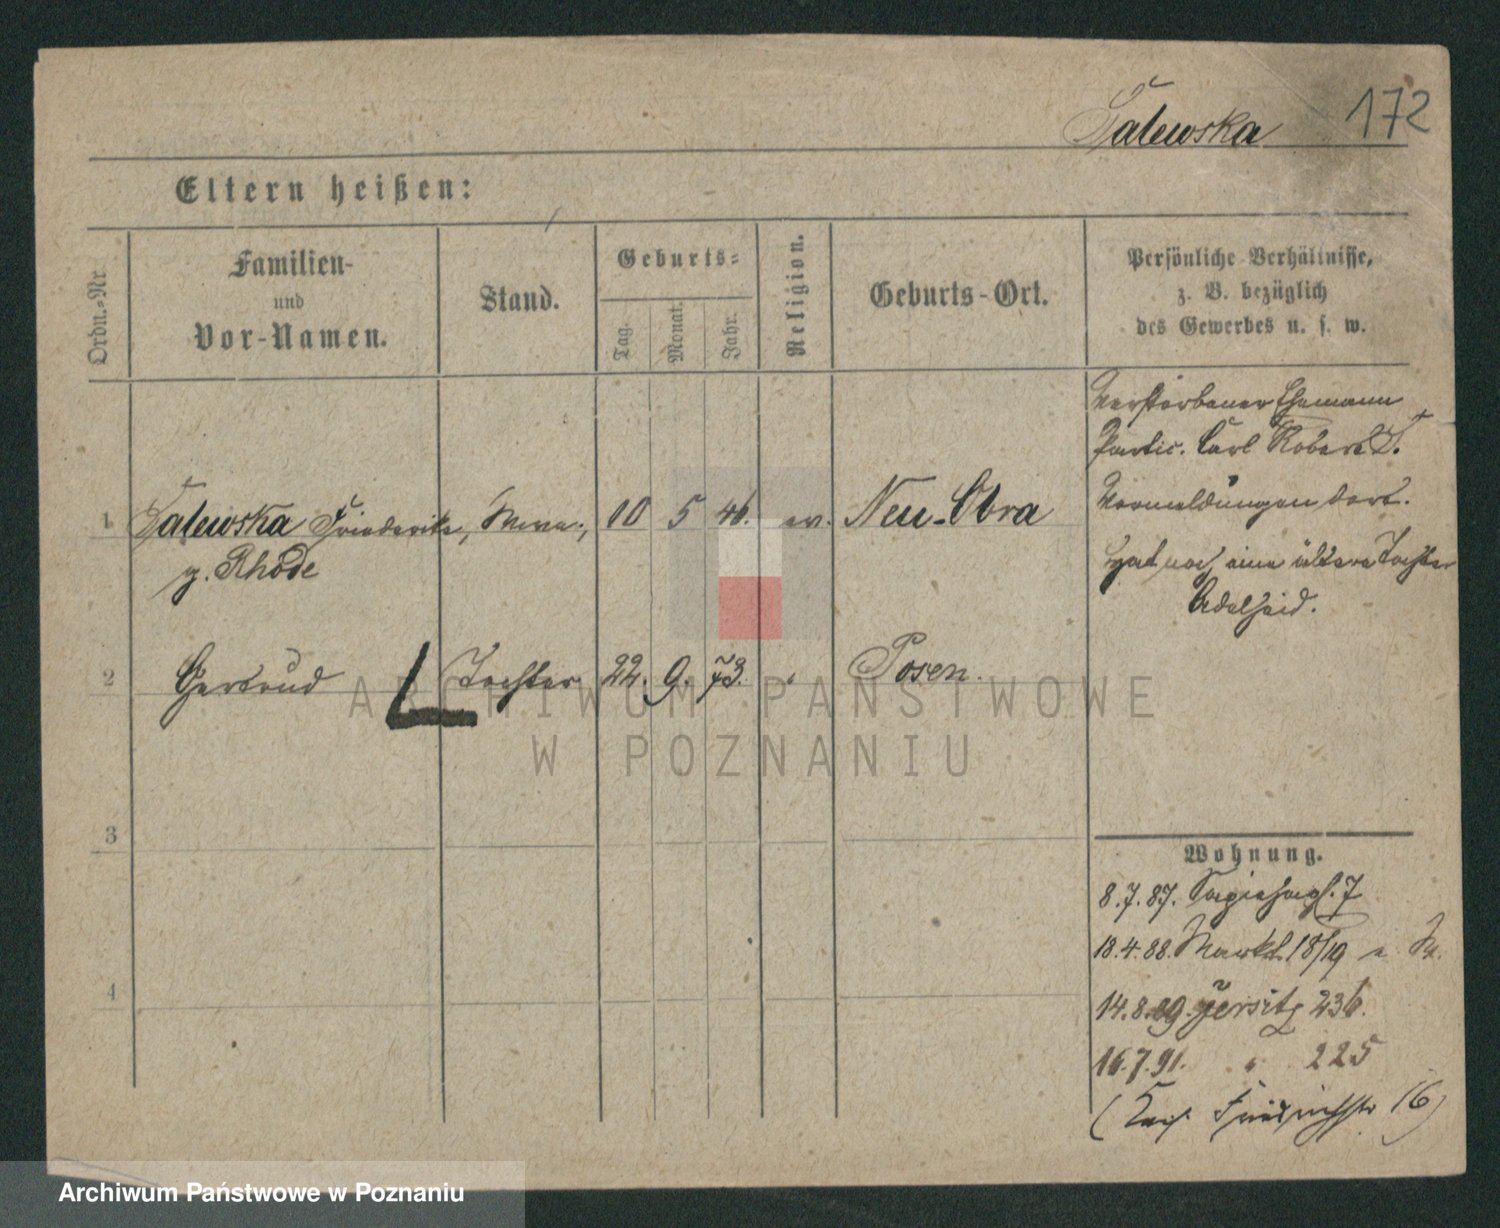 172
Talewska
Eltern heißen:
Ordn.-Nr
Familien-
und
Vor-Namen.
Stand.
Geburts-
Tag.
Monat.
Jahr.
Religion.
Geburts-Ort.
Persönliche Verhältnisse,
z. B. bezüglich
des Gewerbes u. s. w.
Verstorbener Ehemann
Partic. Carl Robert T.
Vermeldungen dort.
1 Talewska Friederike, Wwe., 10 5 46. ev. Neu-Obra
Hat noch eine ältere Tochter
g. Rhode
Adelheid.
2 Gertrud Tochter 22. 9. 73. " Posen.
ARCHIWUM PAŃSTWOWE
W POZNANIU
3
Wohnung.
8.7.87. 7
18.4.88. Markt 18/19
4
14.8.89. Jersitz 236.
16.7.91. " 225
(Kais. Friedrichstr 16)
Archiwum Państwowe w Poznaniu